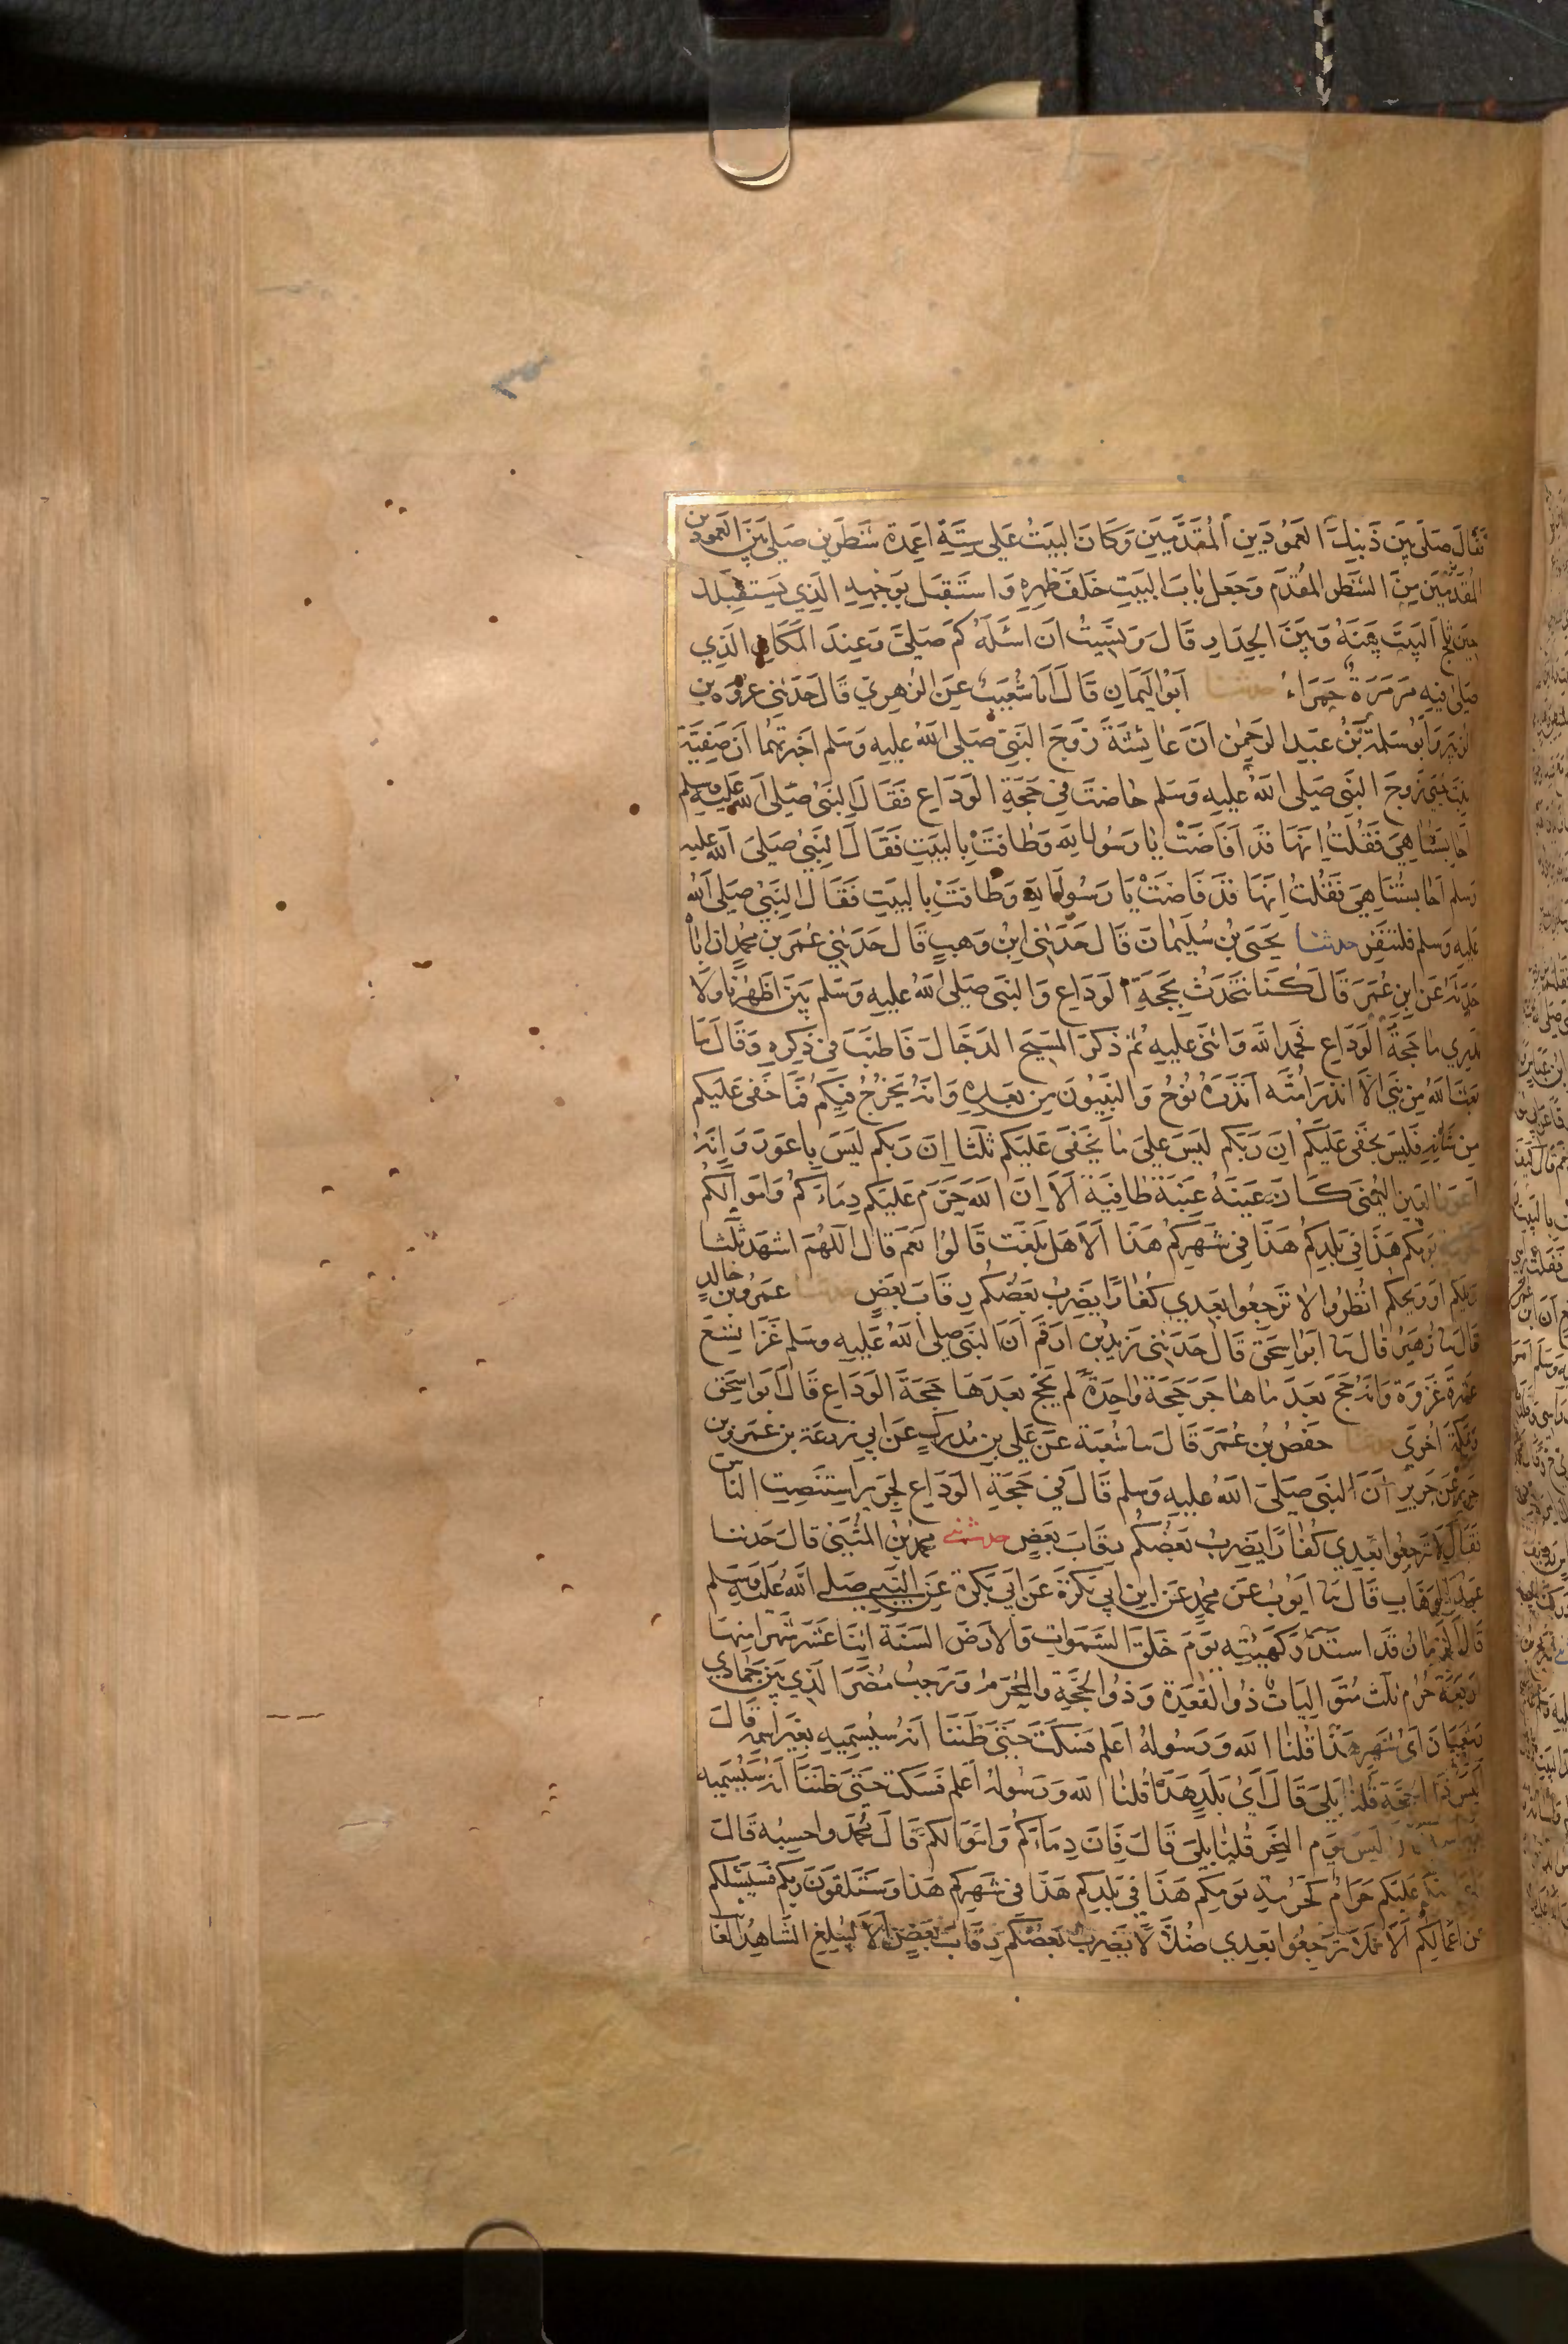 فَقَالَ صَلَّى بَيْنَ ذَيْنِكَ العَمُودَيْنِ المُقَدَّمَيْنِ وَكَانَ البَيْتُ عَلى سِتَّةِ اَعْمِدَة سَطْرَيْنِ صَلَّى بَيْنَ العَمُودَيْنِ
المُقَدَّمَيْنِ مِنَ السَّطْرِ المُقَدَّمِ وَجَعَلَ بَابَ البَيْتِ خَلْفَ ظَهْرِهِ وَاسْتَقْبَلَ بِوَجْهِهِ الَّذِي يَسْتَقْبِلُكَ
حِينَ تَلِجُ البَيْتَ بَيْنَهُ وَبَيْنَ الجِدَارِ قَالَ وَنَسِيتُ اَنْ اَسْئَلَهُ كَمْ صَلَّى وَعِنْدَ المَكَانِ الَّذِي
صَلَّى فِيهِ مَرْمَرَةٌ حَمْرَاءُ حدثنا اَبُوْ اليَمَانِ قَالَ اَنَا شُعَيْبٌ عَنِ الزُّهْرِيِّ قَالَ حَدَّثَنِى عُرْوَة بن
الزُّبَيْرِ وَاَبُو سَلَمَةَ بْنُ عَبْدِ الرَّحْمٰنِ اَنَّ عَائِشَةَ زَوْجَ النَّبِيِّ صَلَّى اللّٰهُ عَلَيْهِ وَسَلَّم اَخْبَرَتْهُمَا اَنَّ صَفِيَّةَ
بِنْتَ حُيَيٍّ زَوْجَ النَّبِي صَلَّى اللّٰهُ عَلَيْهِ وَسَلَّم حَاضَتْ فِي حَجَّةِ الوَدَاعِ فَقَالَ النَّبِيُّ صَلَّى اللّٰه عَلَيْهِ وَسَلَّم
اَحَابِسَتُنَا هِيَ فَقُلْتُ اِنَّهَا قَدْ اَفَاضَتْ يَا رَسُولَ اللّٰه وَطَافَتْ بِالبَيْتِ فَقَالَ النَّبِيُّ صَلَّى اللّٰه عليه
وسلم اَحَابِسَتُنَا هِيَ فَقُلْتُ اِنَّهَا قَدْ فَاضَتْ يَا رَسُولَ اللّٰه وَطَافَتْ بِالبَيْتِ فَقَالَ النَّبِيُّ صَلَّى اللّٰهُ
عَلَيْهِ وَسَلَّم فَلْتَنْفِرْ حدثنا يَحْيَى بْنُ سُلَيْمَانَ قَالَ حَدَّثَنِى ابْنُ وَهْبٍ قَالَ حَدَّثَنِي عُمَر بْنُ مُحَمَّدٍ اَنَّ اَبَاهُ
حَدَّثَهُ عَنِ ابْنِ عُمَرَ قَالَ كُنَّا نَتَحَدَّثُ بِحَجَّةِ الوَدَاعِ وَالنَّبِي صَلَّى اللّٰهُ عَلَيْهِ وَسَلَّم بَيْنَ اَظْهُرِنَا وَلَا
نَدْرِي مَا حَجَّةُ الوَدَاعِ فَحَمِدَ اللّٰهَ وَاَثْنَى عَلَيْهِ ثُمَّ ذَكَرَ المَسِيحَ الدَّجَّالَ فَاَطْنَبَ فِي ذِكْرِهِ وَقَالَ مَا
بَعَثَ اللّٰهُ مِنْ نَبِيٍّ اِلَّا اَنْذَرَ اُمَّتَهُ اَنْذَرَهُ نُوْحُ وَالنَّبِيُّونَ مِنْ بَعْدِهِ وَاَنَّهُ يَخْرُجُ فِيكُمْ فَمَا خَفِيَ عَلَيْكُم
مِنْ شَأْنِهِ فَلَيْسَ يَخْفَى عَلَيْكُمْ اِنَّ رَبَّكُم لَيْسَ عَلَى مَا يَخْفَى عَلَيْكُم ثَلٰثًا اِنَّ رَبَّكُم لَيْسَ بِاَعْوَرَ وَاِنَّهُ
اَعْوَرُ العَيْنِ اليُمْنَى كَاَنَّ عَيْنَهُ عِنَبَة طَافِيَة اَلَا اِنَّ اللّٰهَ حَرَّمَ عَلَيْكُم دِمَاءَكُمْ وَاَمْوَالَكُم
يَوْمِكُم هٰذَا فِي بَلَدِكُمْ هٰذَا فِي شَهْرِكُمْ هٰذَا اَلَا هَلْ بَلَّغْتُ قَالُوْا نَعَمْ قَالَ اللّٰهُمَّ اشْهَدْ ثَلٰثًا
وَيْلَكُم اَوْ وَيْحَكُم انْظُرُوا لَا تَرْجِعُوا بَعْدِي كُفَّارًا يَضْرِبُ بَعْضُكُم رِقَابَ بَعْضٍ حدثنا عَمْرُو بْنُ خَالِدٍ
قَالَ نا زُهَيْر قَالَ نا اَبُو اِسْحٰقَ قَالَ حَدَّثَنِى زَيْدُ بْن اَرْقَمَ اَنَّ النَّبِيَّ صَلَّى اللّٰهُ عَلَيْهِ وَسَلَّم غَزَا تِسْعَ
عَشْرَةَ غَزْوَة وَاَنَّهُ حَجَّ بَعْدَ مَا هَاجَرَ حَجَّةً وَاحِدَةً لَمْ يَحُجَّ بَعْدَهَا حَجَّةَ الوَدَاعِ قَالَ اَبُو اِسْحٰق
وَبِمَكَّةَ اُخْرَى حدثنا حَفْصُ بْنُ عُمَرَ قَالَ نا شُعْبَة عَنْ عَلِي بن مُدْرِكٍ عَنْ اَبِي زُرْعَة بن عَمْرِو بن
جَرِيرٍ عَنْ جَرِيرٍ اَنَّ النَّبِي صَلَّى اللّٰهُ عَلَيْهِ وَسَلَّم قَالَ فِي حَجَّةِ الوَدَاعِ لِجَرِيرٍ اسْتَنْصِتِ النَّاسَ
فَقَالَ لَا تَرْجِعُوا بَعْدِي كُفَّارًا يَضْرِبُ بَعْضُكُم رِقَابَ بَعْضٍ حدثني مُحَمَّدُ بْنُ المُثَنَّى قَالَ حَدَّثَنَا
عَبْدُ الوَهَّابِ قَالَ نا اَيُّوبُ عَنْ مُحَمَّدٍ عَنِ ابْنِ اَبِي بَكْرَةَ عَنْ اَبِي بَكْرَةَ عَنِ النَّبِيِّ صَلَّى اللّٰهُ عَلَيْهِ وَسَلَّم
قَالَ الزَّمَانُ قَدِ اسْتَدَارَ كَهَيْئَتِهِ يَوْمَ خَلَقَ السَّمٰوَاتِ وَالاَرْضَ السَّنَةُ اثْنَا عَشَرَ شَهْرًا مِنْهَا
اَرْبَعَةٌ حُرُم ثَلٰث مُتَوَالِيَاتٌ ذُو القَعْدَةِ وَذُو الحِجَّةِ وَالمُحَرَّمُ وَرَجَبُ مُضَرَ الَّذِي بَيْنَ جُمَادي
وَشَعْبَانَ اَيُّ شَهْرٍ هٰذَا قُلْنَا اللّٰه وَرَسُولُهُ اَعْلَم فَسَكَتَ حَتَّى ظَنَنَّا اَنَّهُ سَيُسَمِّيهِ بِغَيْرِ اسْمِهِ قَالَ
اَلَيْسَ ذَا الحِجَّةِ قُلْنَا بَلَى قَالَ اَيُّ بَلَدٍ هٰذَا قُلْنَا اللّٰه وَرَسُولُهُ اَعْلَم فَسَكَتَ حَتَّى ظَنَنَّا اَنَّهُ سَيُسَمِّيهِ
لَيْسَ يَوْم النَّحْرِ قُلْنَا بَلَى قَالَ فَاِنَّ دِمَاءَكُمْ وَاَمْوَالَكُمْ قَالَ مُحَمَّد وَاَحْسِبُه قَالَ
عَلَيْكُم حَرَامٌ كَحُرْمَةِ يَوْمِكُم هٰذَا فِي بَلَدِكُم هٰذَا فِي شَهْرِكُم هٰذَا وَسَتَلْقَوْنَ رَبَّكُم فَسَيَسْئَلُكُم
عَنْ اَعْمَالِكُمْ اَلَا فَلَا تَرْجِعُوا بَعْدِي ضُلَّالًا يَضْرِبُ بَعْضُكُم رِقَابَ بَعْضٍ اَلَا لِيُبَلِّغِ الشَّاهِدُ الغَا